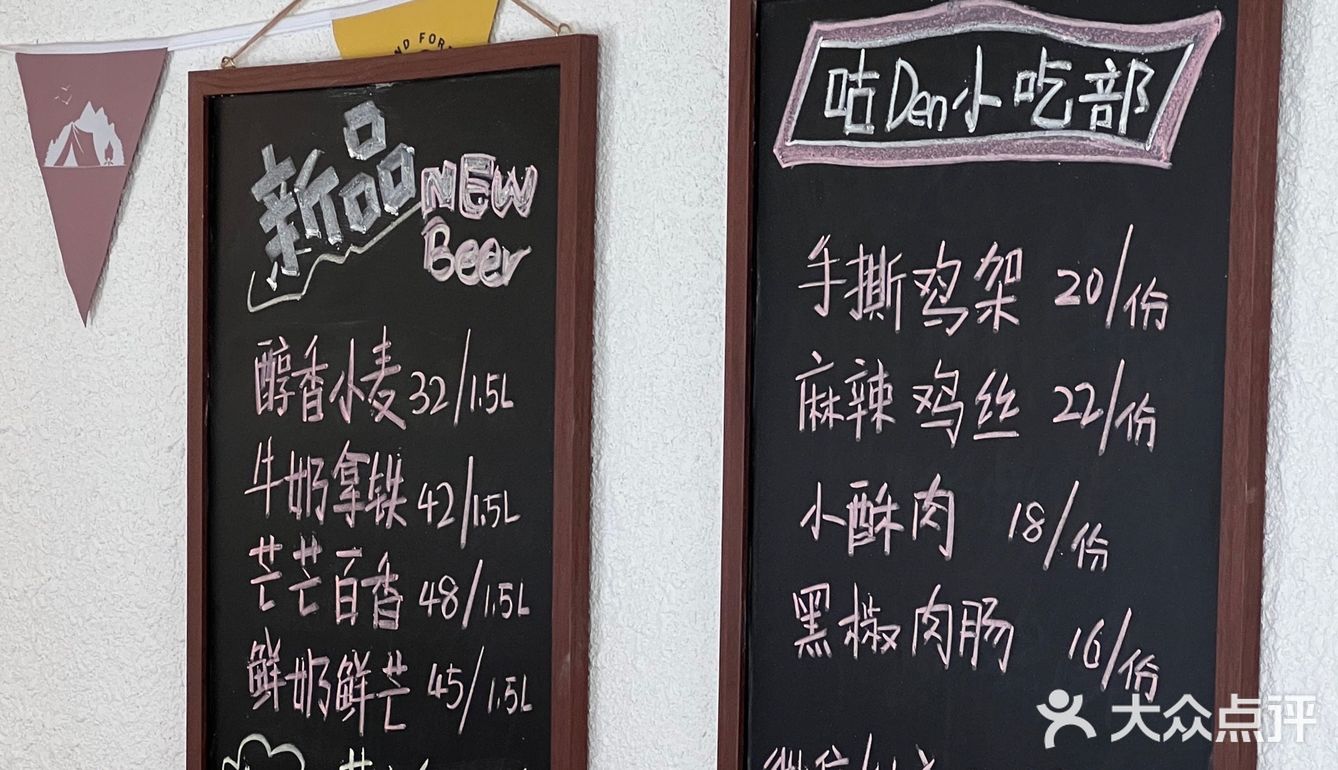 ND FOR
新品 NEW
Beer
醇香小麦 32/1.5L
牛奶拿铁 42/1.5L
芒芒百香 48/1.5L
鲜奶鲜芒 45/1.5L
咕Den小吃部
手撕鸡架 20/份
麻辣鸡丝 22/份
小酥肉 18/份
黑椒肉肠 16/份
大众点评